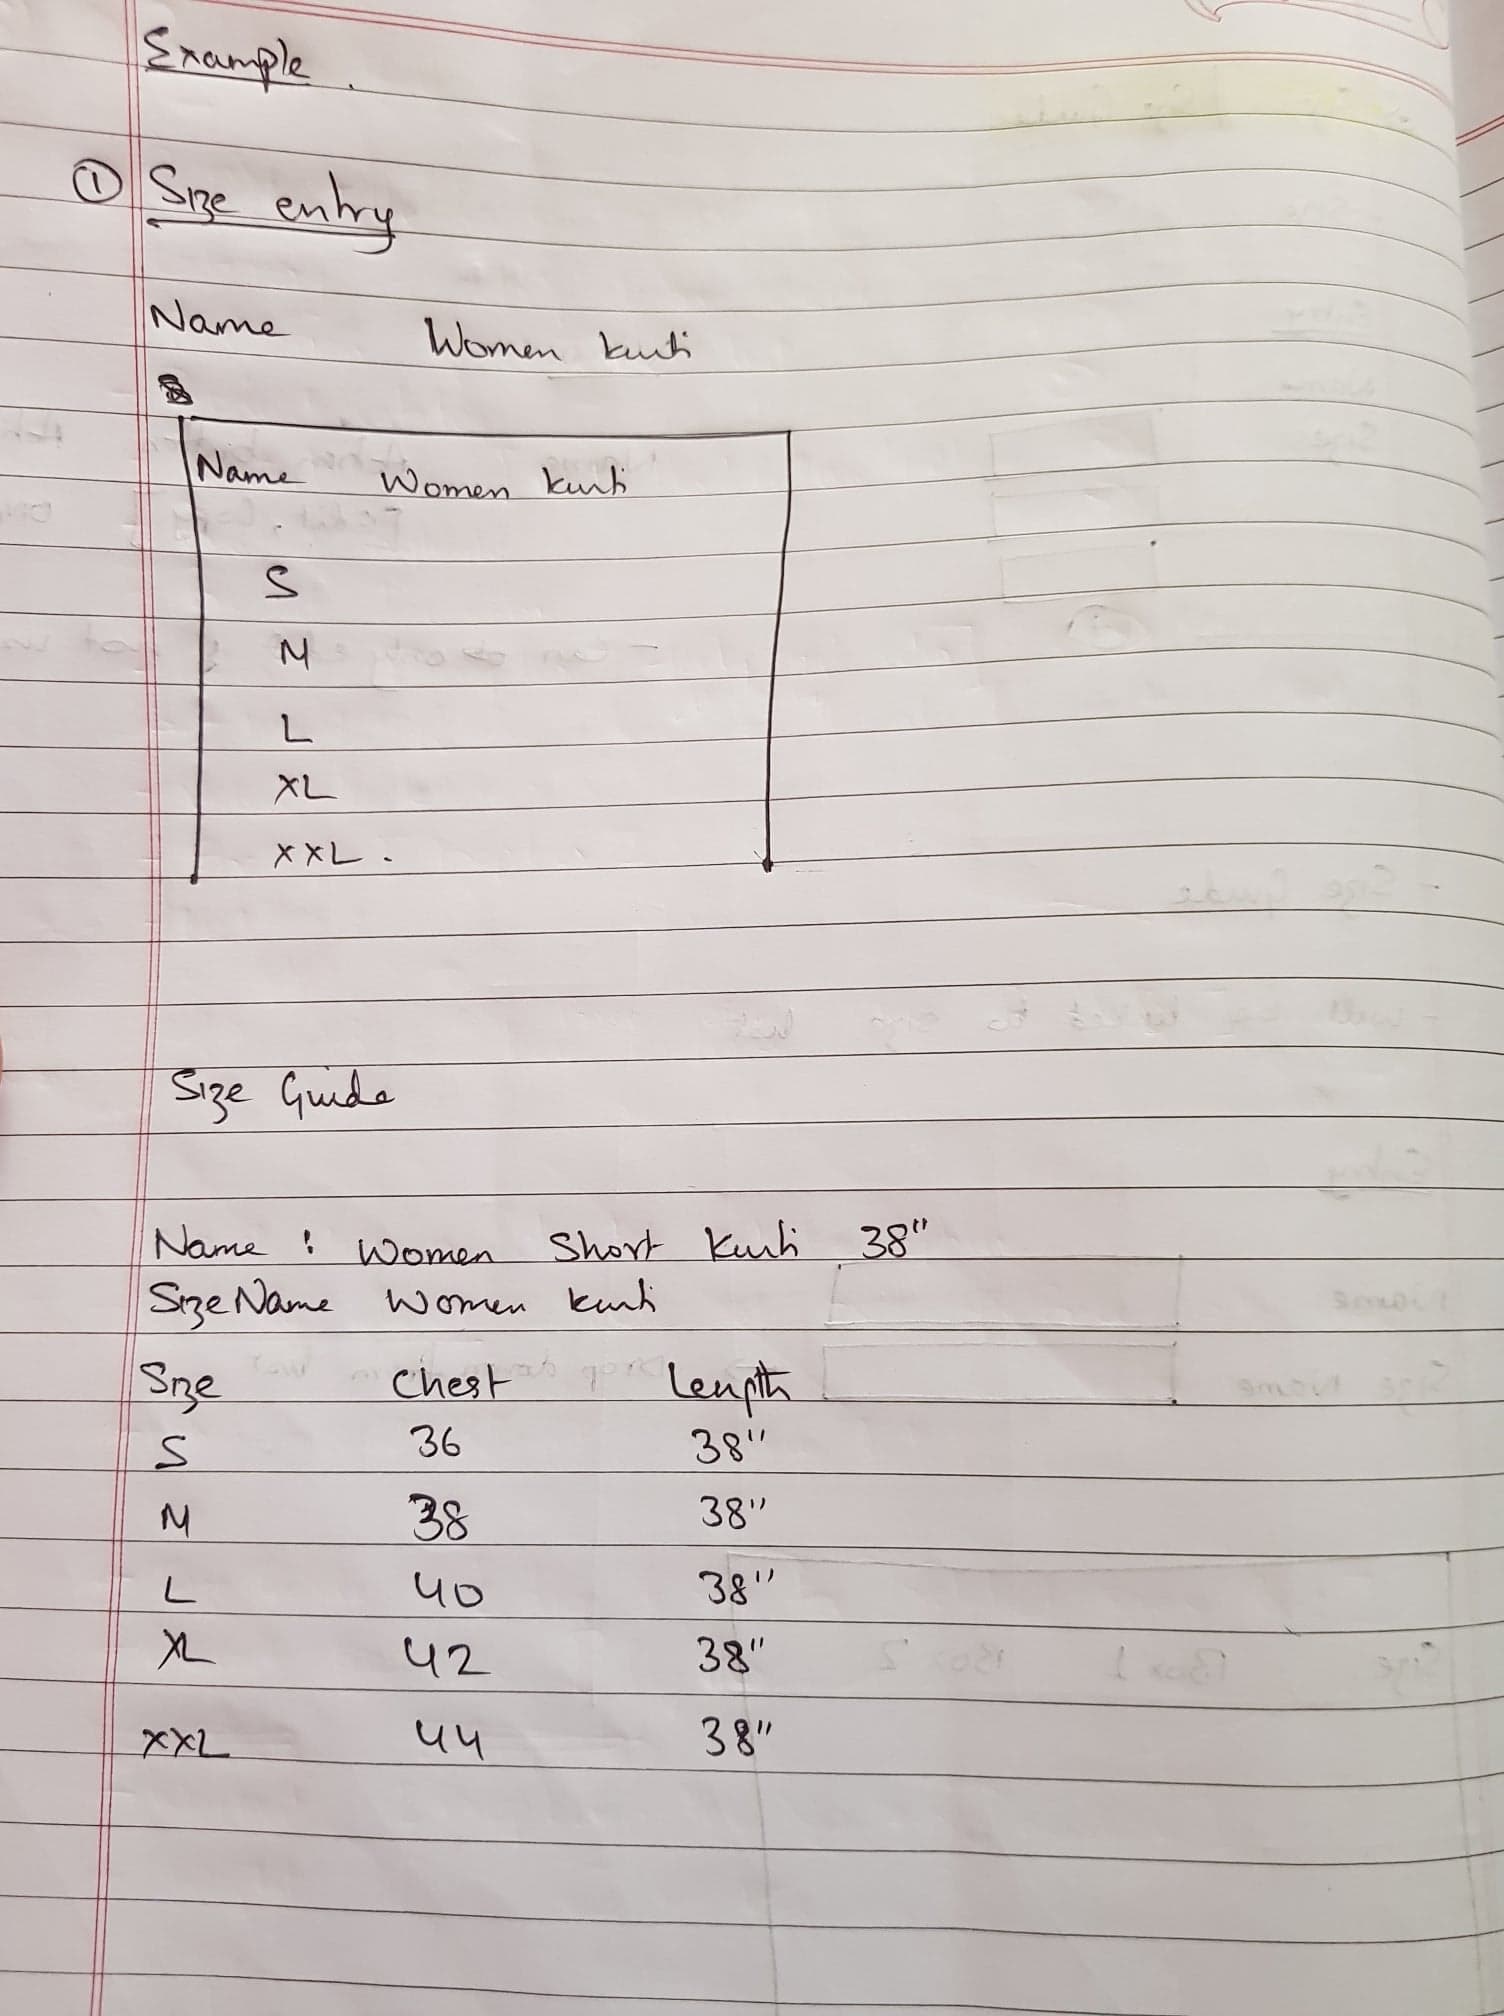 Example.
① Size entry
Name Women kurti
Name Women kurti
S
M
L
XL
XXL.
Size Guide
Name : Women Short Kurti 38"
Size Name Women kurti
Size Chest Length
S 36 38"
M 38 38"
L 40 38"
XL 42 38"
XXL 44 38"